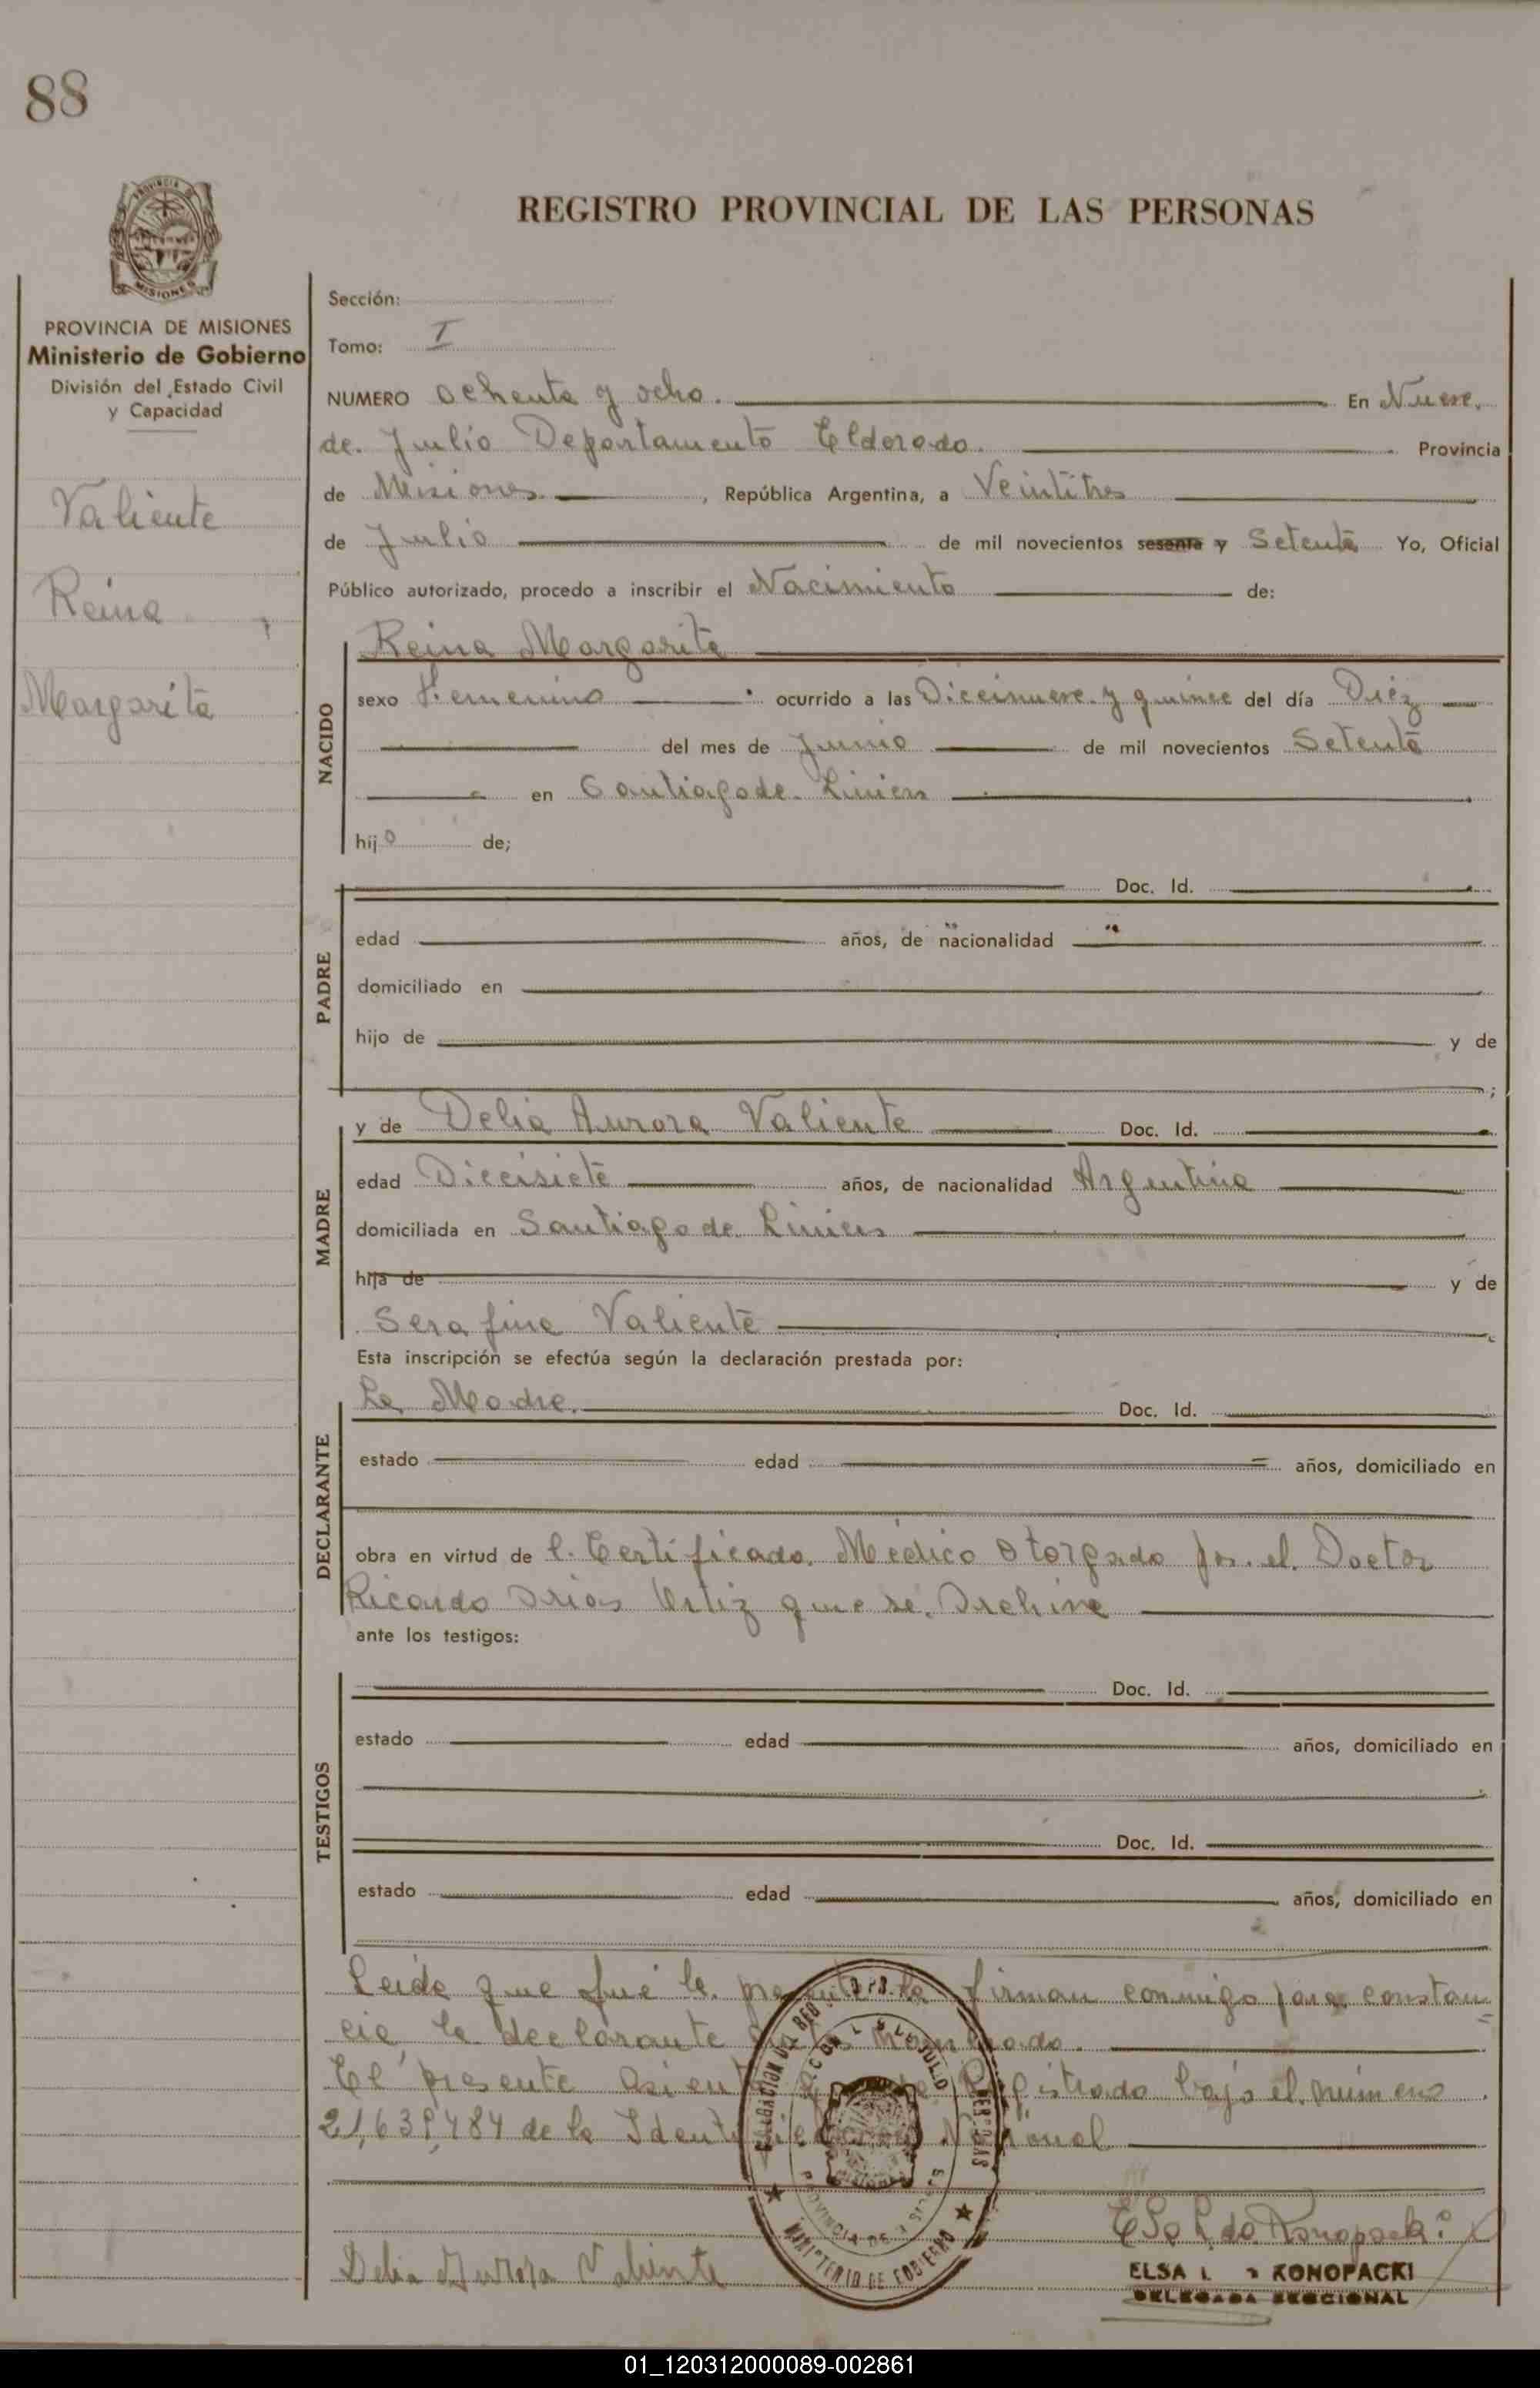 88
REGISTRO PROVINCIAL DE LAS PERSONAS
PROVINCIA DE MISIONES
Ministerio de Gobierno
División del Estado Civil
y Capacidad
Valiente
Reina
Margarita
Sección:
Tomo: I
NUMERO ochenta y ocho. En Nueve
de Julio Departamento Eldorado. Provincia
de Misiones, República Argentina, a Veintitres
de Julio de mil novecientos sesenta y Setenta Yo, Oficial
Público autorizado, procedo a inscribir el Nacimiento de:
NACIDO
Reina Margarita
sexo Femenino ocurrido a las Diecinueve y quince del día Diez
del mes de Junio de mil novecientos Setenta
en Santiago de Liniers
hijo de;
PADRE
Doc. Id.
edad años, de nacionalidad
domiciliado en
hijo de y de
;
MADRE
y de Delia Aurora Valiente Doc. Id.
edad Diecisiete años, de nacionalidad Argentina
domiciliada en Santiago de Liniers
hija de y de
Serafina Valiente
Esta inscripción se efectúa según la declaración prestada por:
DECLARANTE
La Madre. Doc. Id.
estado edad años, domiciliado en
obra en virtud de l. Certificado Médico otorgado por el Doctor
Ricardo Ortiz que se Archiva
ante los testigos:
TESTIGOS
Doc. Id.
estado edad años, domiciliado en
Doc. Id.
estado edad años, domiciliado en
Leida que fué la presente la firman conmigo para constan
cia la declarante
El presente Registrado bajo el número
21,639,484 de la Nacional
Delia Aurora Valiente
ELSA L KONOPACKI
DELEGADA SECCIONAL
PROVINCIA DE
MINISTERIO DE GOBIERNO
01_120312000089-002861